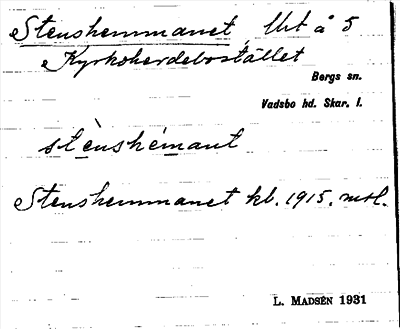 Stenshemmanet, Uht å 5
Kyrkoherdebostället
Bergs sn.
Vadsbo hd. Skar. l.
stènshémant
Stenshemmanet kb. 1915. mtl.
L. MADSÉN 1931